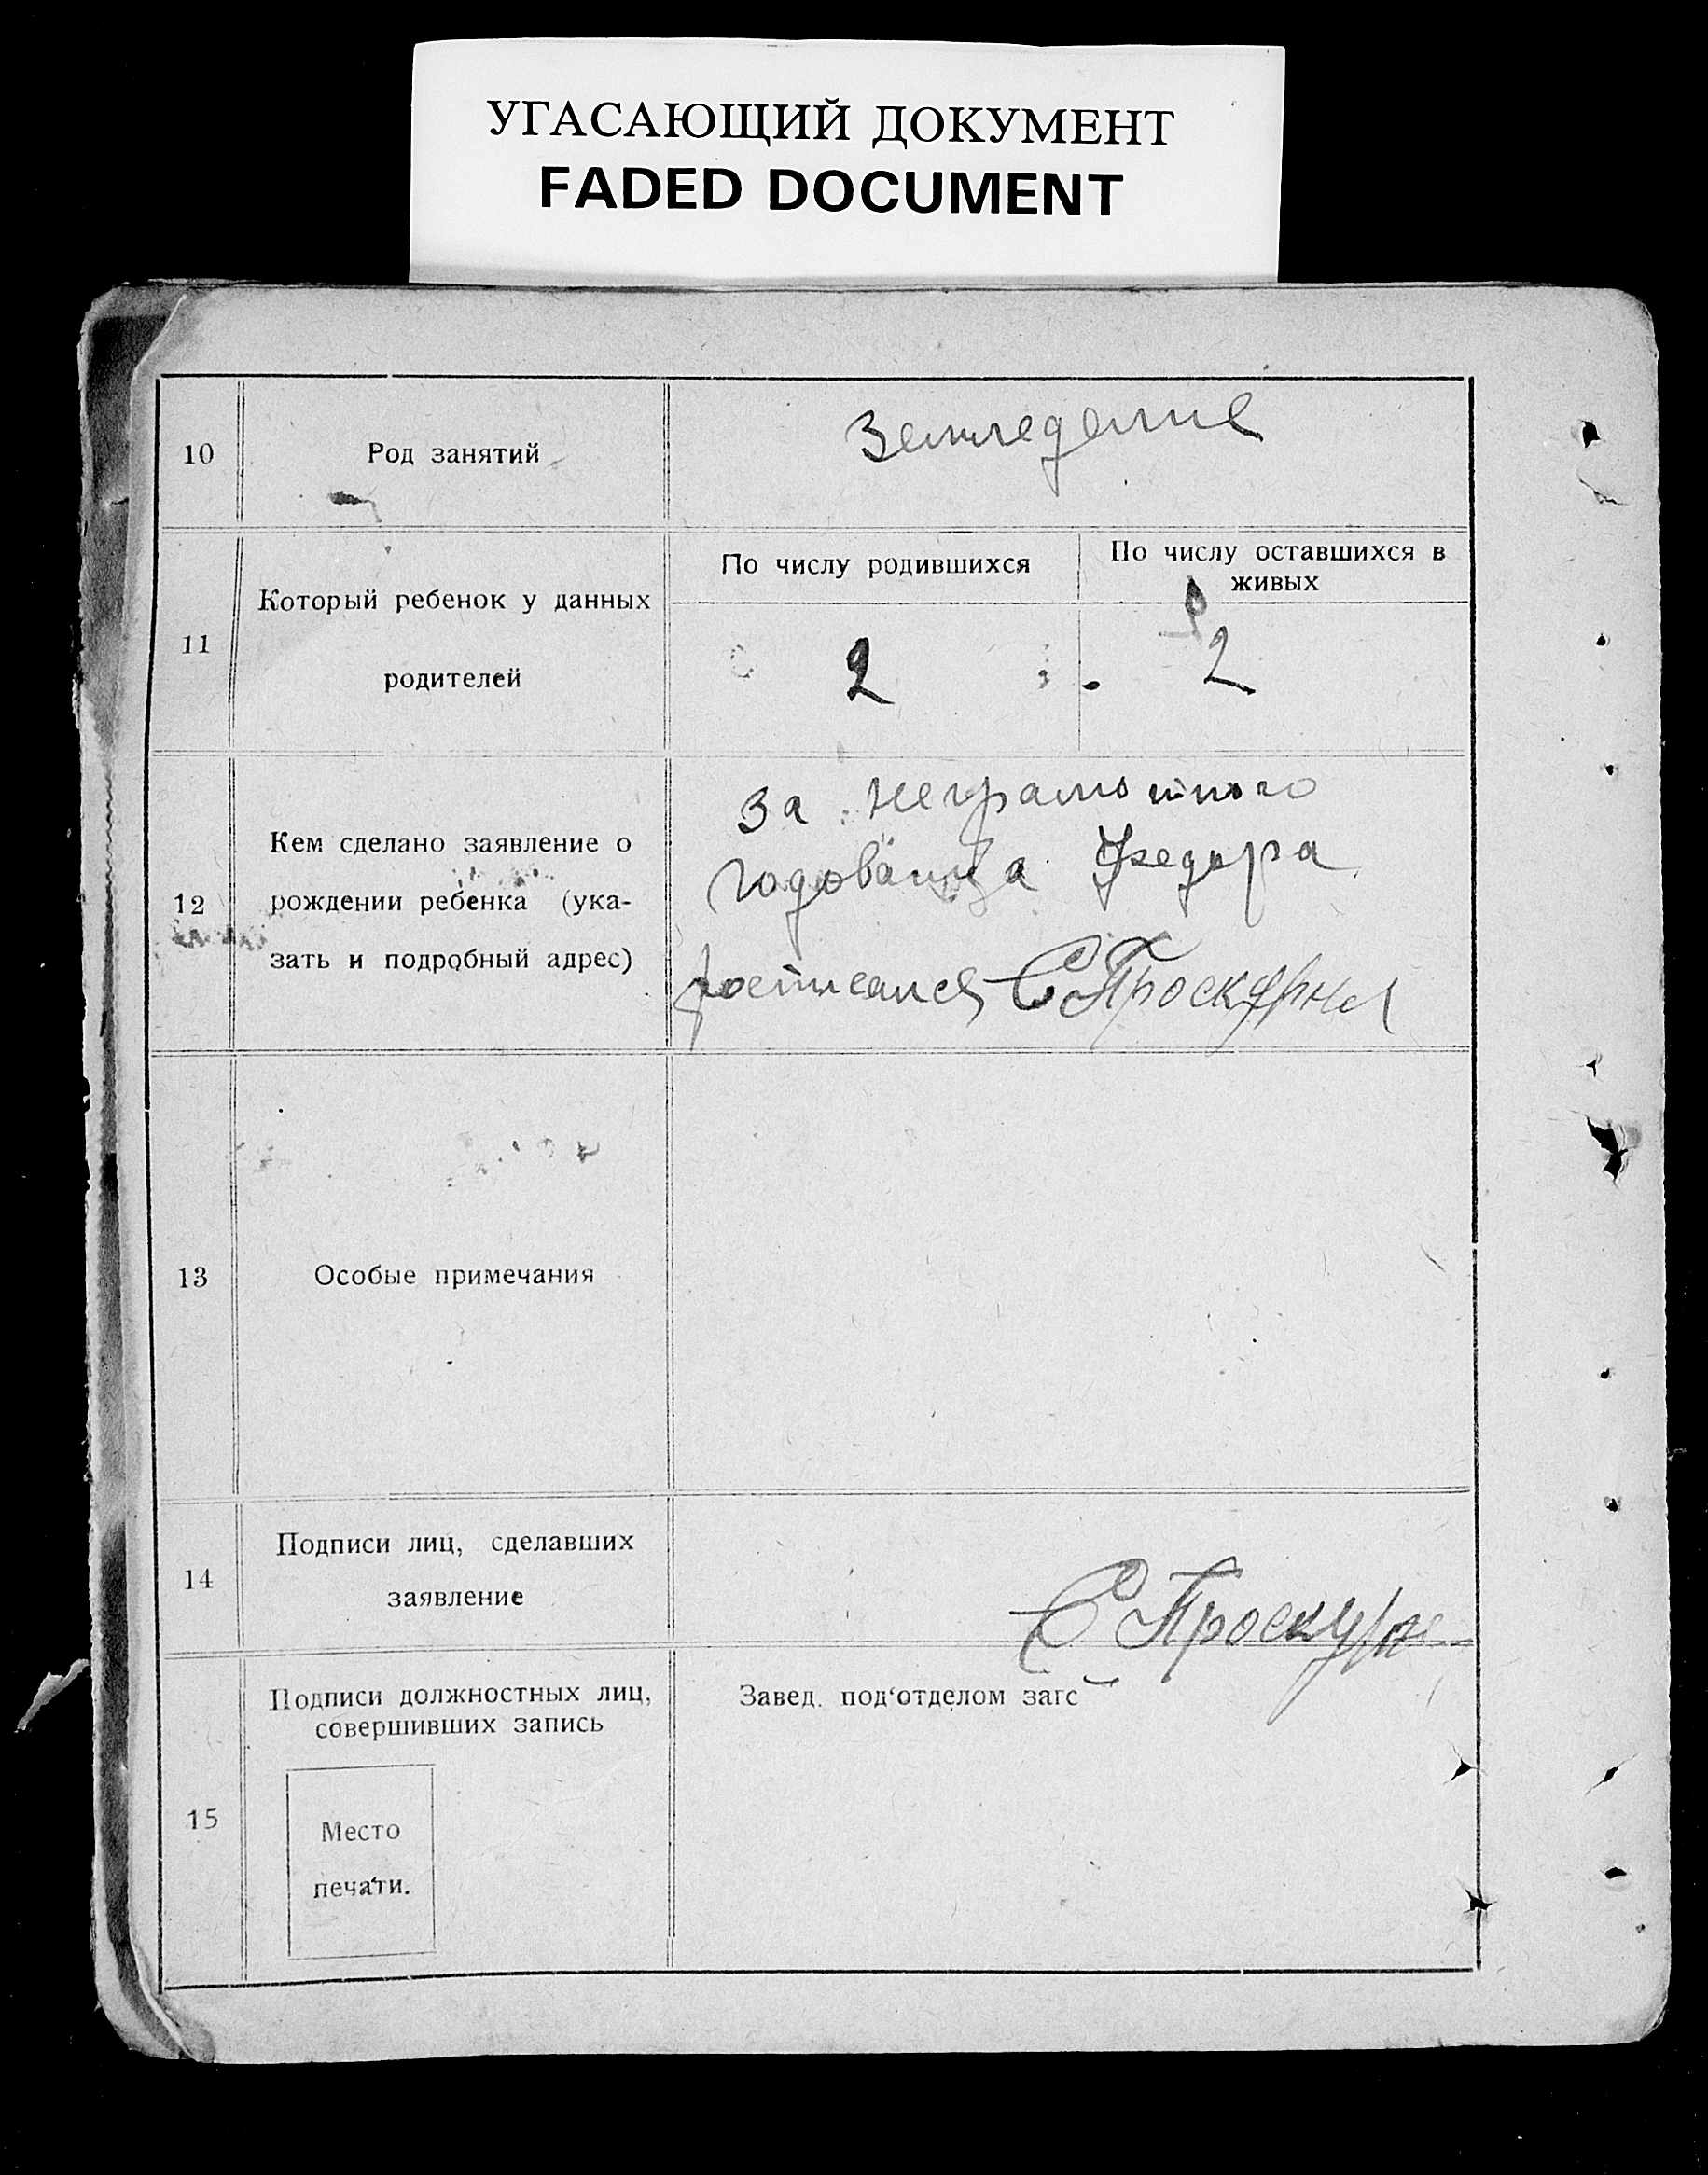 УГАСАЮЩИЙ ДОКУМЕНТ
FADED DOCUMENT
10
Род занятий
Земледелие
11
Который ребенок у данных
родителей
По числу родившихся
По числу оставшихся в
живых
2
2
12
Кем сделано заявление о
рождении ребенка (ука-
зать и подробный адрес)
За неграмотного
Годованца Федора
росписался С Проскурня
13
Особые примечания
14
Подписи лиц, сделавших
заявление
С Проскурн
15
Подписи должностных лиц,
совершивших запись
Место
печати.
Завед. под'отделом загс